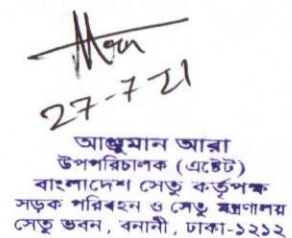 27-7-21
আঞ্জুমান আরা
উপপরিচালক (এষ্টেট)
বাংলাদেশ সেতু কর্তৃপক্ষ
সড়ক পরিবহন ও সেতু মন্ত্রণালয়
সেতু ভবন, বনানী, ঢাকা-১২১২